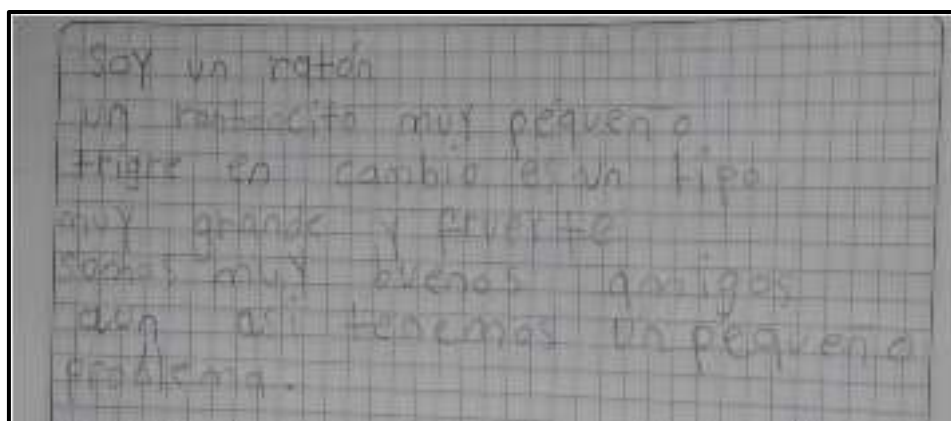 Soy un ratón
un ratoncito muy pequeño
trigre en cambio es un tipo
muy grande y fruerte
somos muy buenos amigos
aún así tenemos un pequeño
problema.